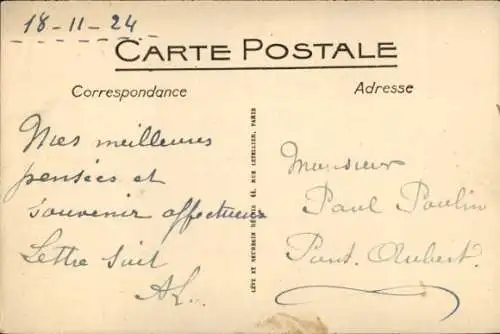 18-11-24
CARTE POSTALE
Correspondance
Adresse
Mes meilleures
pensées et
souvenir affectueux
Lettre suit
AL..
LÉVY ET NEURDEIN RÉUNIS 44, RUE LETELLIER, PARIS
Monsieur
Paul Poulin
Pont. Aubert.